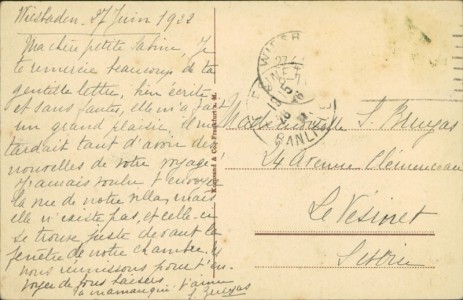 Wiesbaden, 27 Juin 1922
Ma chère petite Sabine, Je
te remercie beaucoup de ta
gentille lettre, bien écrite
et sans fautes, elle m'a fait
un grand plaisir, il me
tardait tant d'avoir des
nouvelles de votre voyage
J'aurais voulu t'envoyer
la vue de notre villa, mais
elle n'existe pas, et celle-ci
se trouve juste devant la
fenêtre de notre chambre.
nous unissons pour t'en-
voyer de tous baisers
ta mamangui. t'aime
J. Bruyas
Knackstedt & Co. Frankfurt a. M.
WIESB
BANL
Mademoiselle S. Bruyas
24 Avenue Clémenceau
Le Vésinet
S. et Oise